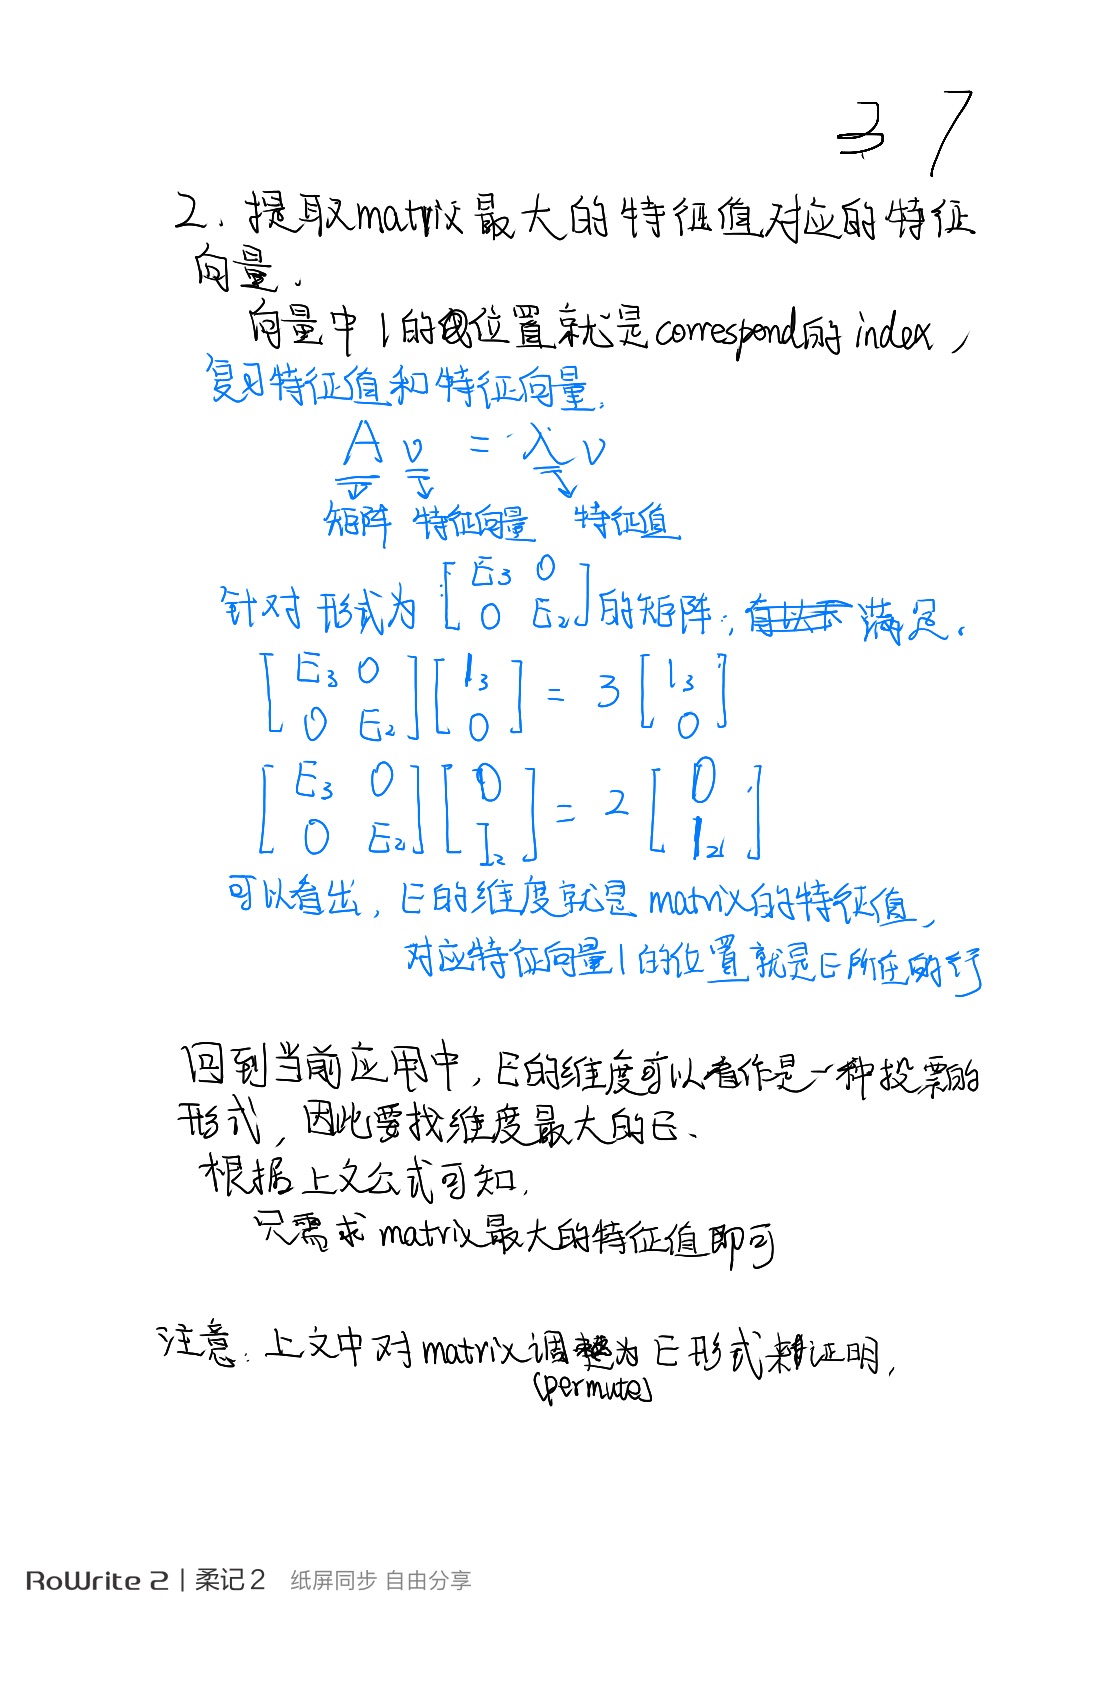 37
2. 提取matrix最大的特征值对应的特征
向量.
向量中1的位置就是correspond的index,
复习特征值和特征向量.
A v = λ v
矩阵 特征向量 特征值
针对形式为 [E₃ 0; 0 E₂] 的矩阵, 满足.
[E₃ 0; 0 E₂] [1₃; 0] = 3 [1₃; 0]
[E₃ 0; 0 E₂] [0; 1₂] = 2 [0; 1₂]
可以看出, E的维度就是matrix的特征值,
对应特征向量1的位置就是E所在的行
回到当前应用中, E的维度可以看作是一种投票的
形式, 因此要找维度最大的E.
根据上文公式可知.
只需求matrix最大的特征值即可
注意: 上文中对matrix调整为E形式来证明.
(permute)
RoWrite 2 | 柔记2 纸屏同步 自由分享